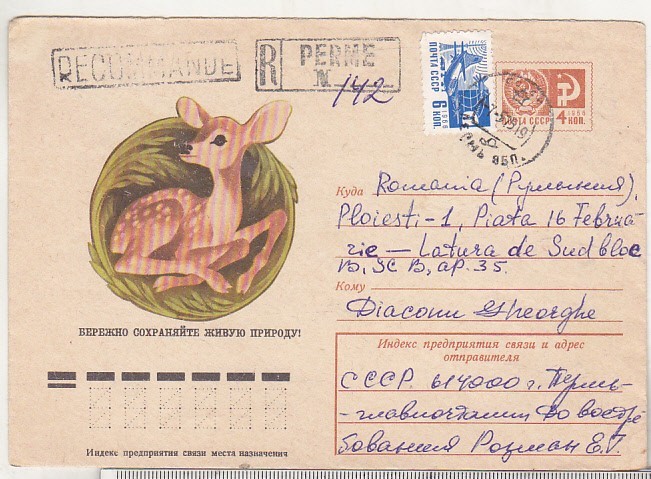 RECOMMANDE
R PERME
N 142
ПОЧТА СССР 6 КОП. 1966
ПОЧТА СССР 1966 4 КОП.
Куда Romania (Румыния),
Ploiesti-1, Piata 16 Februa-
rie — Latura de Sud bloc
B, SC B, ap. 35.
Кому
Diaconu Gheorghe
БЕРЕЖНО СОХРАНЯЙТЕ ЖИВУЮ ПРИРОДУ!
Индекс предприятия связи и адрес
отправителя
СССР. 614000 г. Пермь-
-главпочтамт До востре
бования Розман Е.Г.
Индекс предприятия связи места назначения